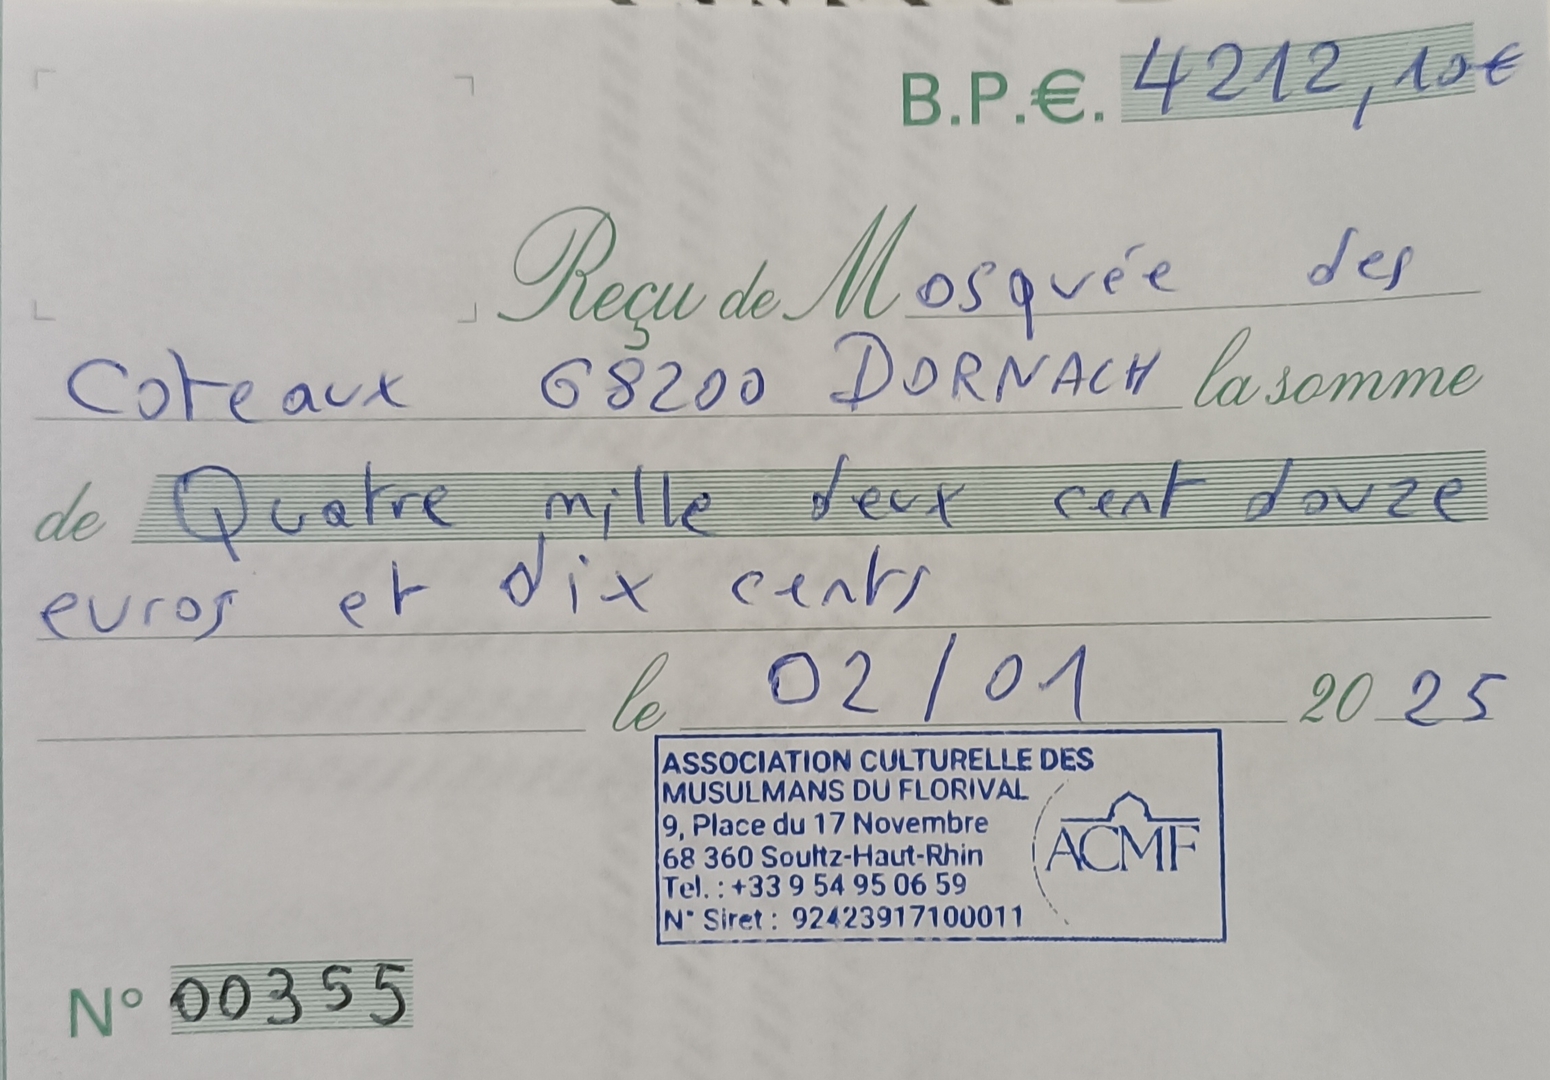 B.P.€. 4212,10€
Reçu de Mosquée des
Coteaux 68200 DORNACH la somme
de Quatre mille deux cent douze
euros et dix cents
le 02/01 2025
ASSOCIATION CULTURELLE DES
MUSULMANS DU FLORIVAL
9, Place du 17 Novembre
68 360 Soultz-Haut-Rhin
Tel. : +33 9 54 95 06 59
N° Siret : 92423917100011
ACMF
N° 00355